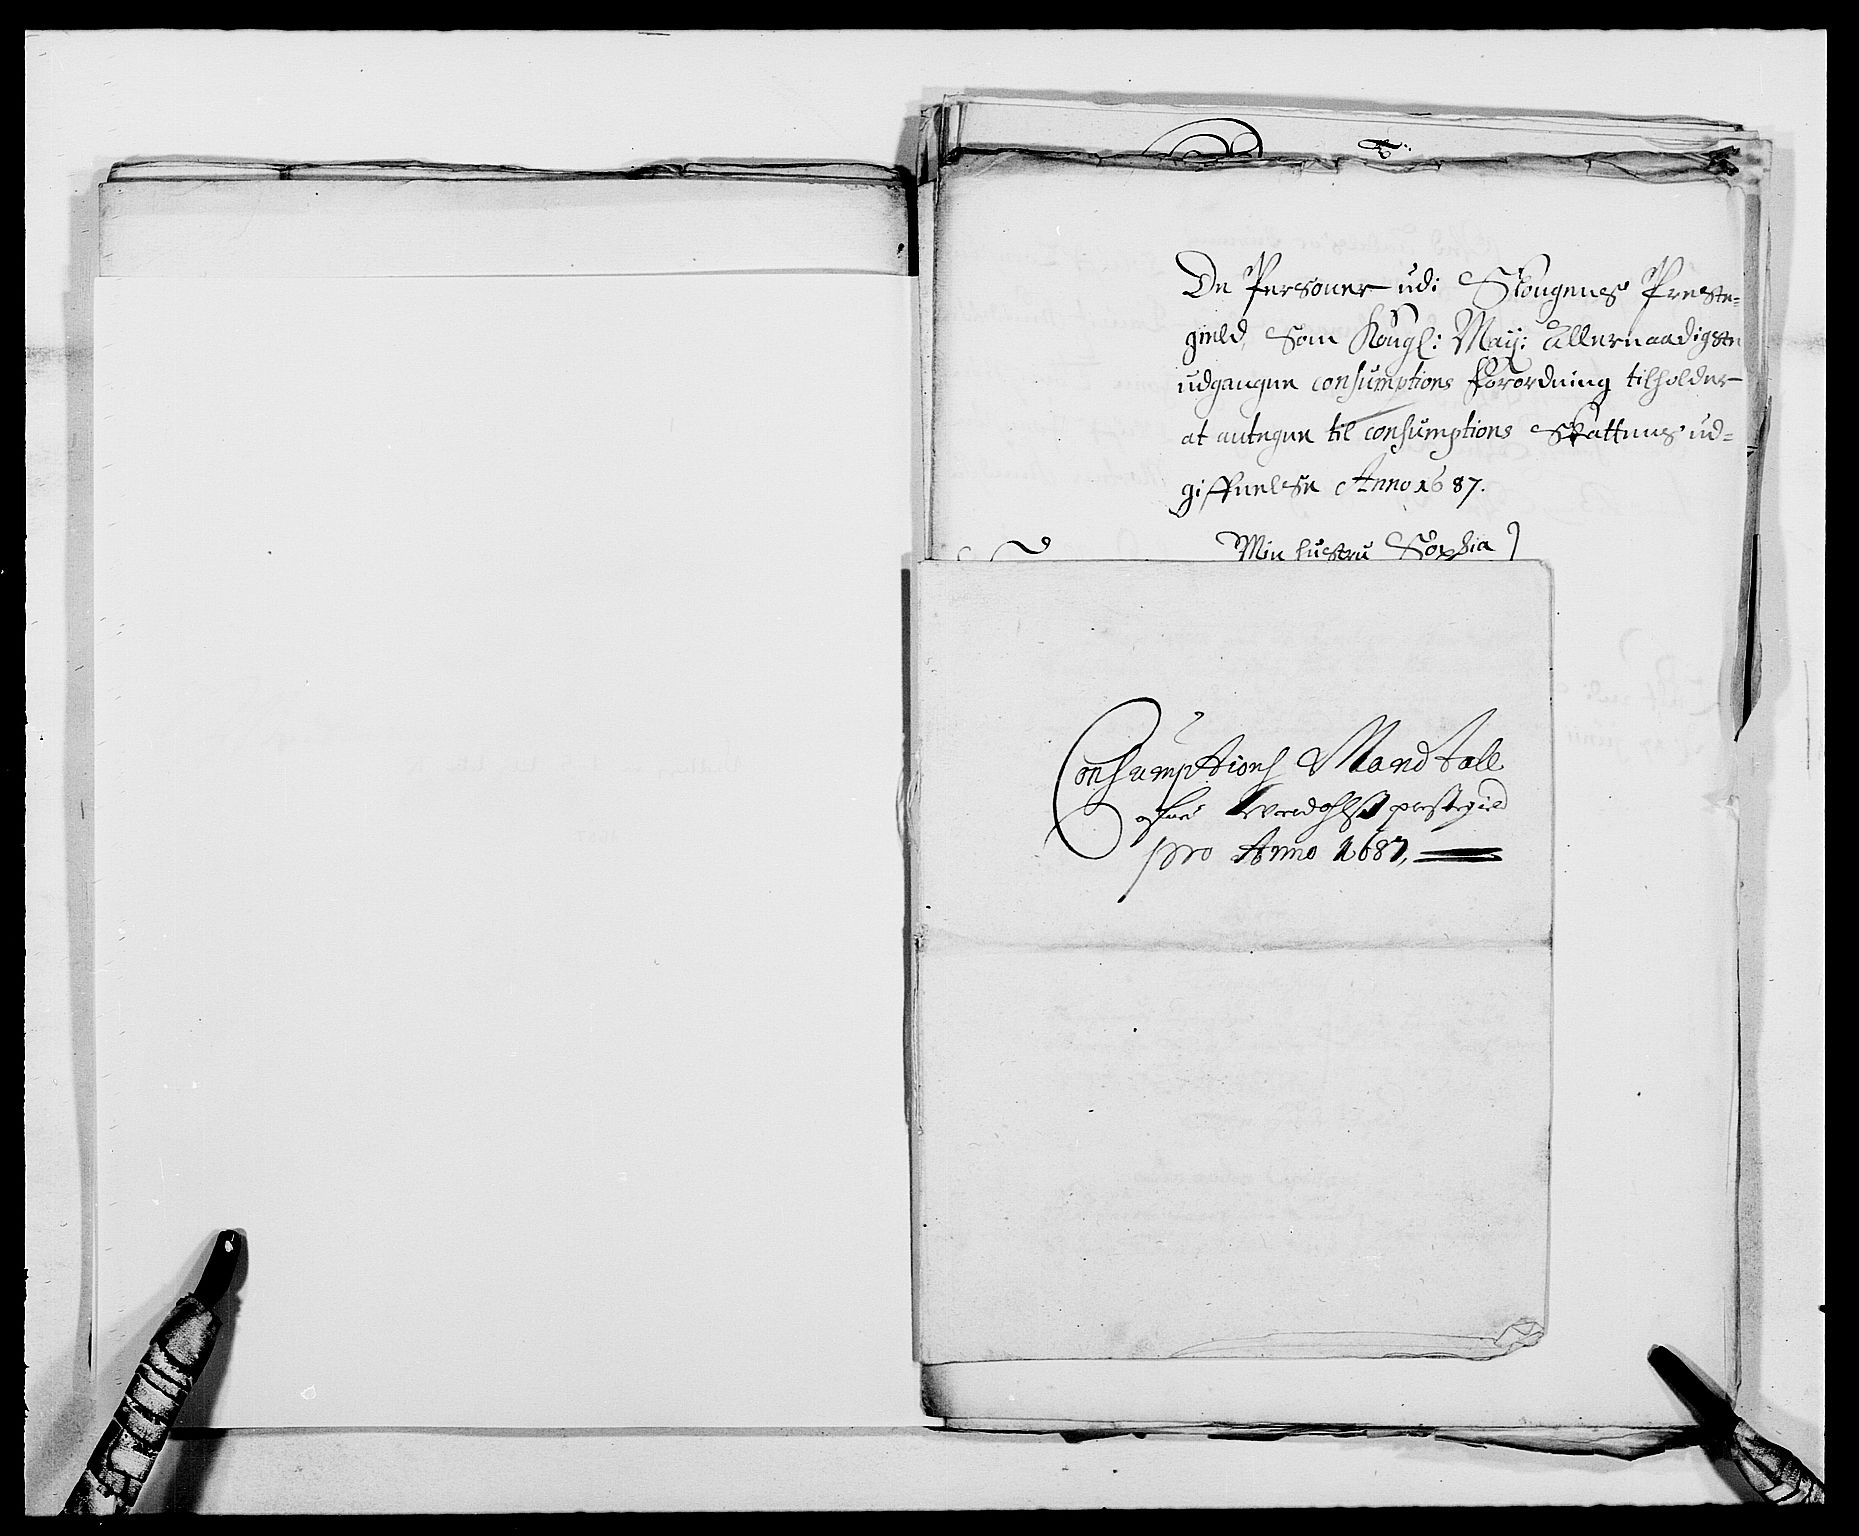 De Personer udi Skougens Preste-
gield, Som Kongl: May: Allernaadigste
udgangne consumptions forordning tilholder
at antegne til consumptions Skattens ud-
giffuelse Anno 1687.
Min hustru Sophia
Consumptions Mandtall
ofuer Weredahls prestegield
pro Anno 1687,